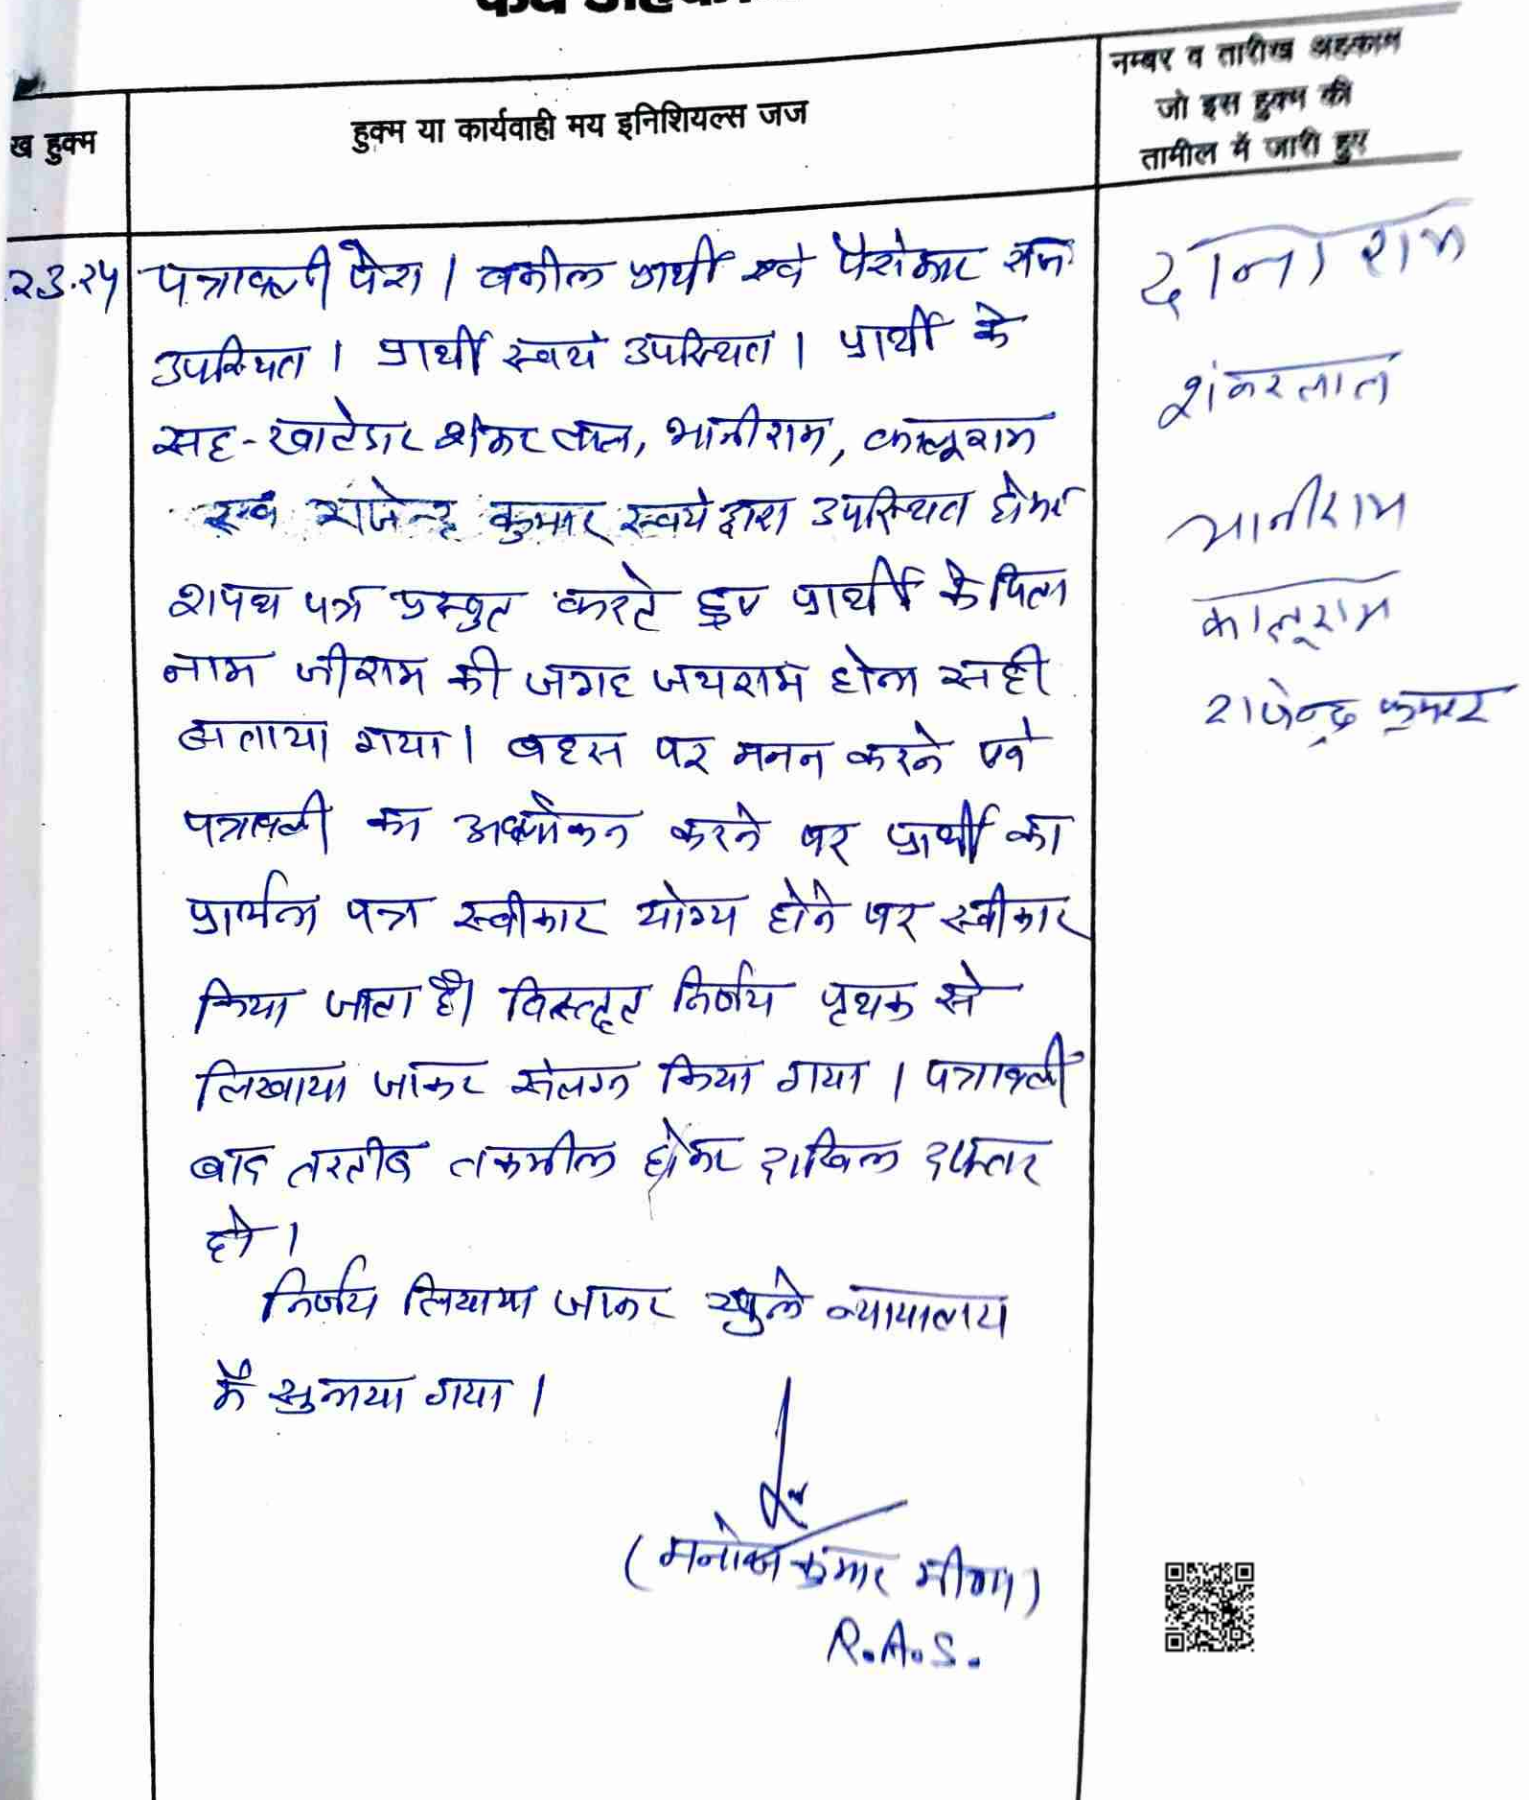 ख हुक्म
हुक्म या कार्यवाही मय इनिशियल्स जज
नम्बर व तारीख अहकाम
जो इस हुक्म की
तामील में जारी हुए
पत्रावली पेश। वकील प्रार्थी एवं पैरोकार राज
उपस्थित। प्रार्थी स्वयं उपस्थित। प्रार्थी के
सह-खातेदार शंकर लाल, भानीराम, कालूराम
एवं राजेन्द्र कुमार स्वयं द्वारा उपस्थित होकर
शपथ पत्र प्रस्तुत करते हुए प्रार्थी के पिता
नाम जीराम की जगह जयराम होना सही
बताया गया। बहस पर मनन करने एवं
पत्रावली का अवलोकन करने पर प्रार्थी का
प्रार्थना पत्र स्वीकार योग्य होने पर स्वीकार
किया जाता है। विस्तृत निर्णय पृथक से
लिखाया जाकर संलग्न किया गया। पत्रावली
बाद तरतीब तकमील होकर दाखिल दफ्तर
हो।
निर्णय लिखाया जाकर खुले न्यायालय
में सुनाया गया।
(मनोज कुमार मीणा)
R.A.S.
दानाराम
शंकरलाल
भानीराम
कालूराम
राजेन्द्र कुमार